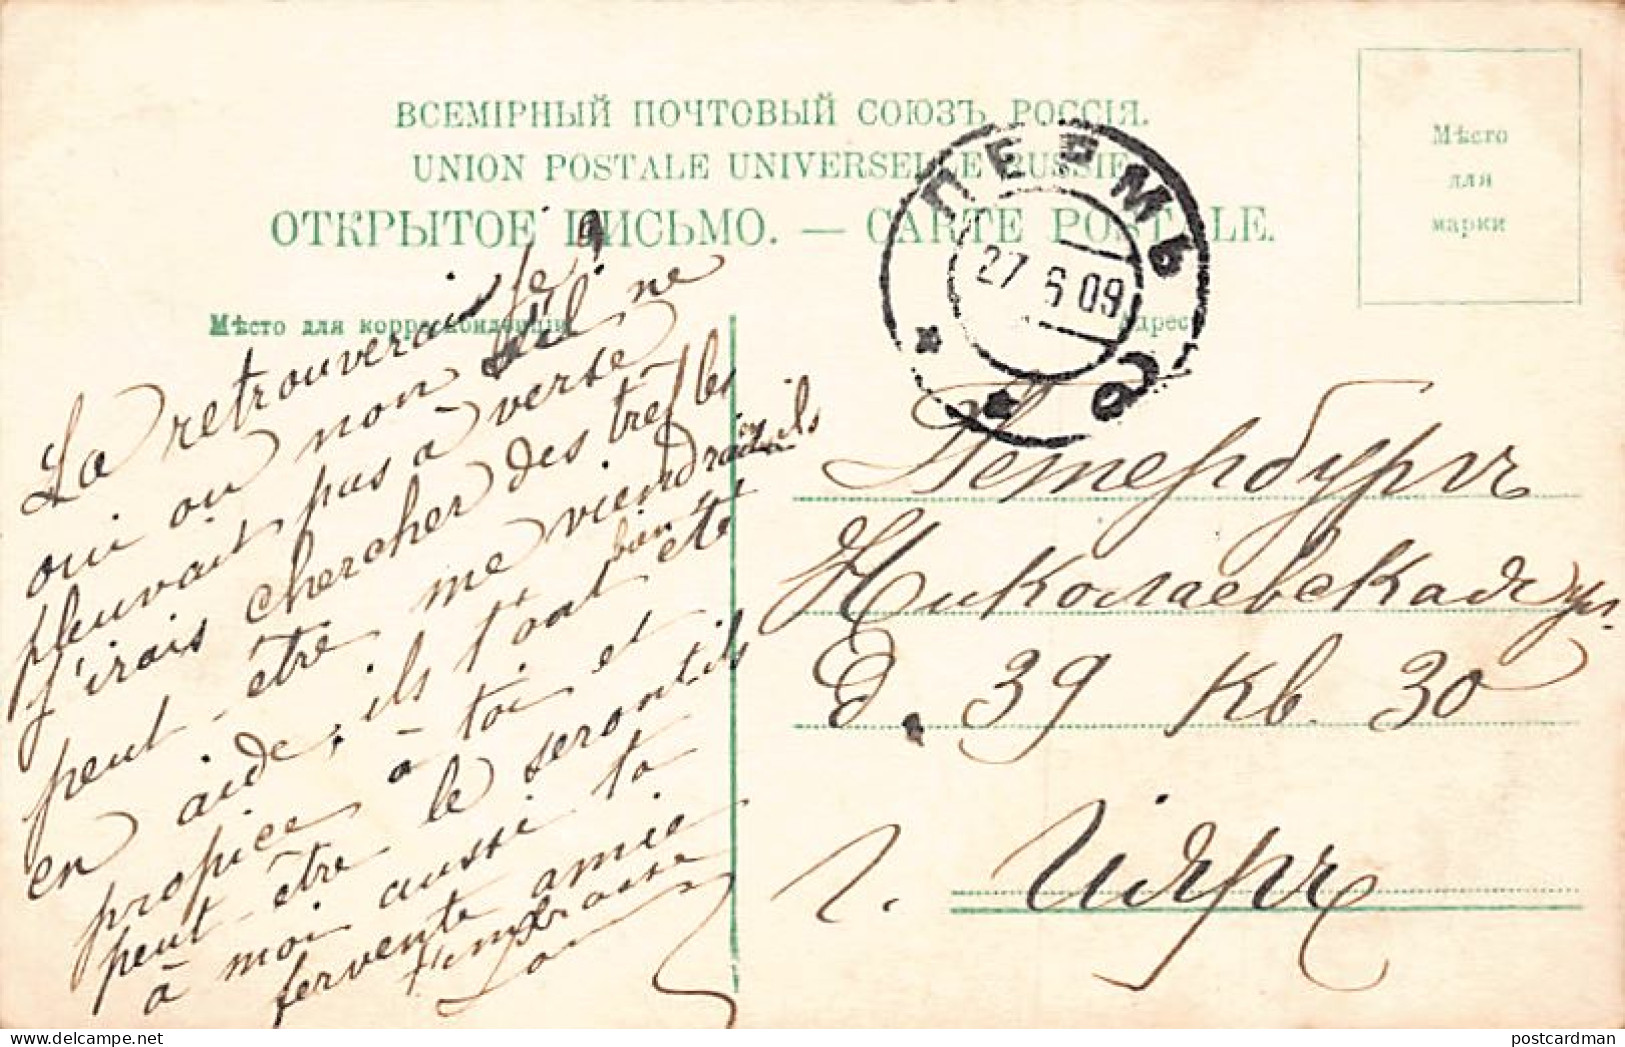 ВСЕМІРНЫЙ ПОЧТОВЫЙ СОЮЗЪ РОССІЯ.
UNION POSTALE UNIVERSELLE RUSSIE
ОТКРЫТОЕ ПИСЬМО. — CARTE POSTALE.
Мѣсто
для
марки
Мѣсто для корреспонденціи
Адресъ
ПЕРМЬ
27 6 09
La retrouverais je ?
oui ou non s'il ne
pleuvait pas à verse
j'irais chercher des trefles
peut-être me viendraient ils
en aide, ils t'ont bien été
propice à toi et
peut-être le seront ils
à moi aussi ta
fervente amie
t'embrasse
Петербургъ
Николаевская ул.
д. 39 кв. 30
Г.
postcardman